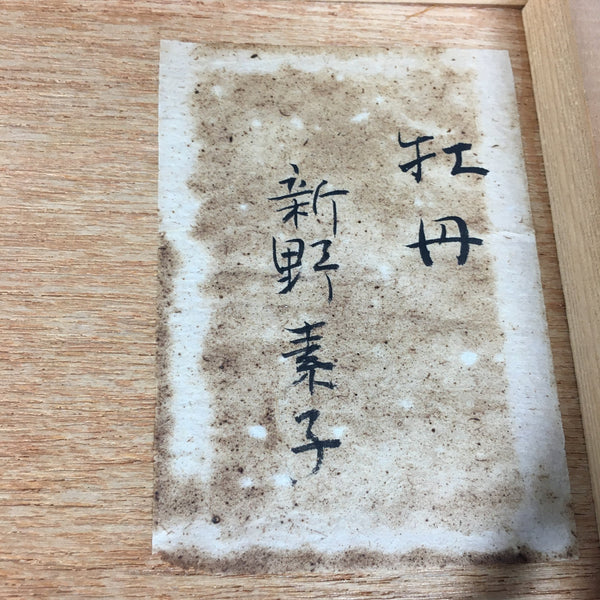 牡丹
新野素子